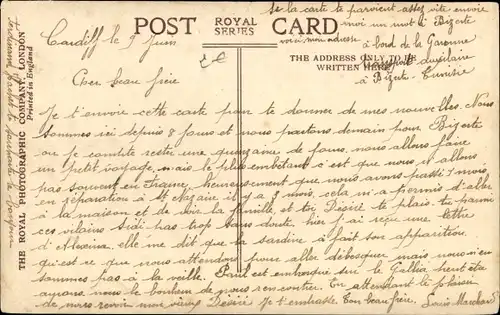 si la carte te parvient assez vite envoie
moi un mot à Bizerte
voici mon adresse à bord de la Garonne
auxiliaire
à Bizerte - Tunisie
POST ROYAL SERIES CARD
THE ADDRESS ONLY TO BE
WRITTEN HERE
THE ROYAL PHOTOGRAPHIC COMPANY, LONDON
Printed in England
Cardiff le 9 Juin
Cher beau frère
Je t'envoie cette carte pour te donner de mes nouvelles. Nous
sommes ici depuis 8 jours et nous partons demain pour Bizerte
ou je compte rester une quinzaine de jours, nous allons faire
un petit voyage, mais le plus embêtant c'est que nous n'allons
pas souvent en France, heureusement que nous avons passé 7 mois
en réparation à St Nazaire il y a mois, cela m'a permis d'aller
à la maison et de voir la famille, et toi Désiré te plais-tu parmi
ces vilains Sidi pas trop sans doute, hier j'ai reçu une lettre
d'Alexina, elle me dit que la sardine a fait son apparition.
qu'est-ce que nous attendons pour aller débarquer mais nous n'en
sommes pas à la veille. Paul est embarqué sur le peut-être
aurons nous le bonheur de nous rencontrer. En attendant le plaisir
de nous revoir mon vieux Désiré Je t'embrasse. Ton beau frère. Louis